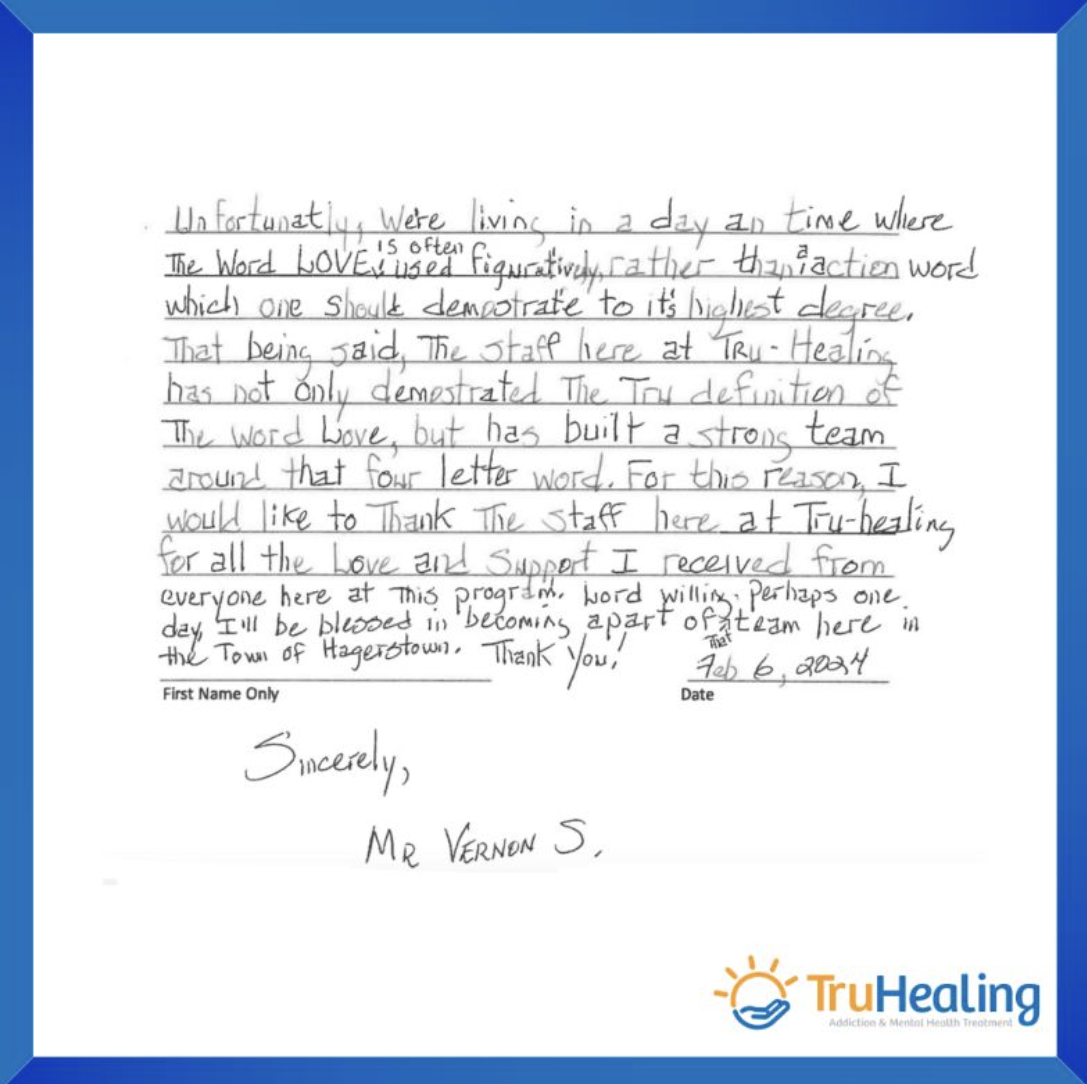 Unfortunatly, We're living in a day an time where
The Word LOVE, is often used figuratively, rather than a action word
which one should demostrate to it's highest degree.
That being said, The staff here at TRU-Healing
has not only demostrated The Tru definition of
The word Love, but has built a strong team
around that four letter word. For this reason, I
would like to Thank The staff here at Tru-healing
for all the Love and Support I received from
everyone here at This program. Lord willing. Perhaps one
day, I'll be blessed in becoming apart of That team here in
the Town of Hagerstown. Thank You!
Feb 6, 2024
First Name Only Date
Sincerely,
MR VERNON S.
TruHealing
Addiction & Mental Health Treatment